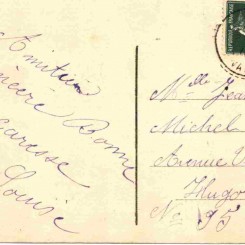 Amitiés
sincère
Bonne
caresse
Louise
Mlle Jea
Michel
Avenue V
Hugo
No 95